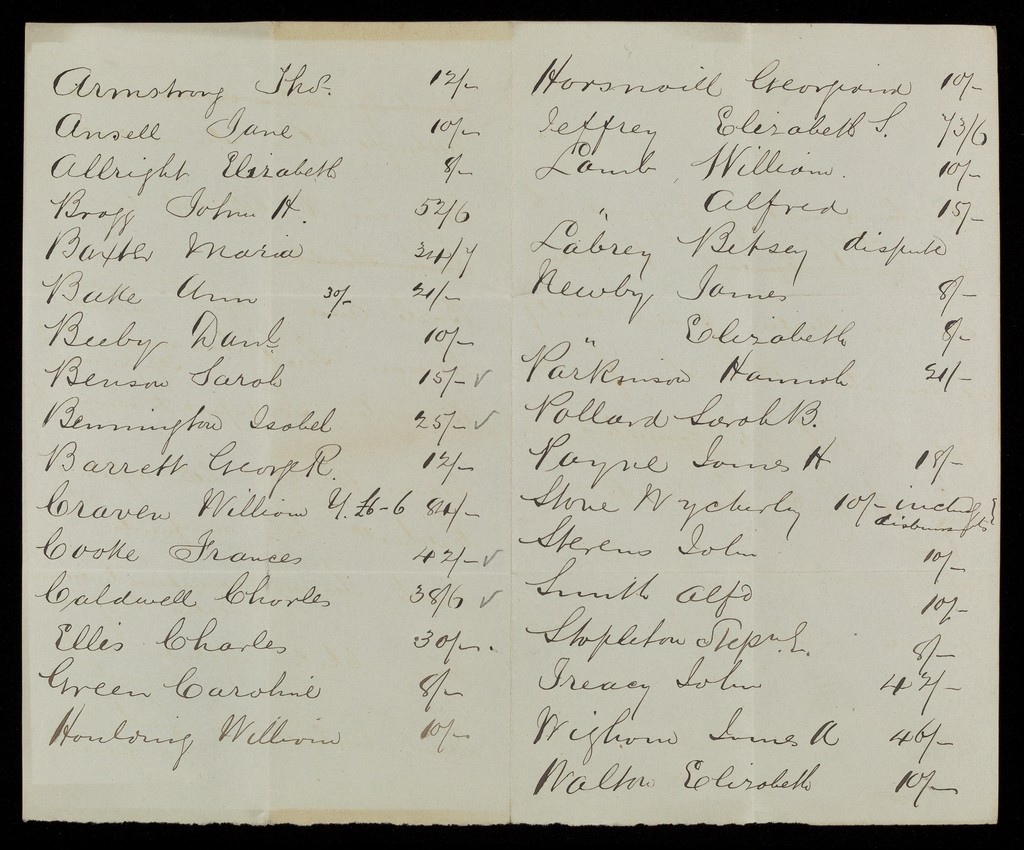 Armstrong Thos. 12/-
Ansell Jane 10/-
Allright Elizabeth 8/-
Bragg John H. 52/6
Baxter Maria 34/7
Bake Ann 30/- 21/-
Beeby Danl. 10/-
Benson Sarah 15/- ✓
Bennington Isabel 25/- ✓
Barrett George R. 12/-
Craven William Y. £6-6 84/-
Cooke Frances 42/- ✓
Caldwell Charles 38/6 ✓
Ellis Charles 30/-.
Green Caroline 8/-
Houlding William 10/-
Horsnaill Georgiana 10/-
Jeffrey Elizabeth S. 73/6
Lamb, William. 10/-
" Alfred 15/-
Labrey Betsey dispute
Newby James 8/-
" Elizabeth 8/-
Parkinson Hannah 21/-
Pollard Sarah B.
Payne James H 18/-
Stone Wycherly 10/- includg
disbursmts
Stevens John 10/-
Smith Alfd 10/-
Stapleton Stepn. E. 8/-
Treacy John 42/-
Wigham James A 46/-
Walton Elizabeth 10/-